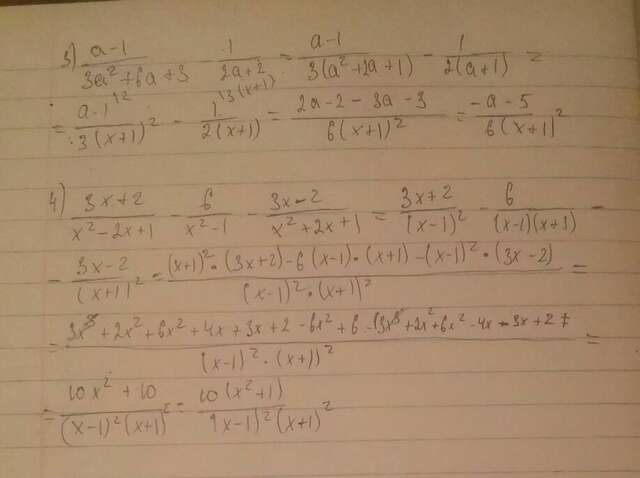 3) (a-1)/(3a²+6a+3) - 1/(2a+2) = (a-1)/(3(a²+2a+1)) - 1/(2(a+1)) =
= (a-1)^{12}/(3(x+1)²) - 1^{3(x+1)}/(2(x+1)) = (2a-2-3a-3)/(6(x+1)²) = (-a-5)/(6(x+1)²)
4) (3x+2)/(x²-2x+1) - 6/(x²-1) - (3x-2)/(x²+2x+1) = (3x+2)/((x-1)²) - 6/((x-1)(x+1)) -
- (3x-2)/((x+1)²) = ((x+1)²·(3x+2)-6(x-1)·(x+1)-(x-1)²·(3x-2))/((x-1)²·(x+1)²) =
= (3x³+2x²+6x²+4x+3x+2-6x²+6-(3x³+2x²+6x²-4x+3x+2)/((x-1)²·(x+1)²) =
= (10x²+10)/((x-1)²(x+1)²) = 10(x²+1)/((x-1)²(x+1)²)